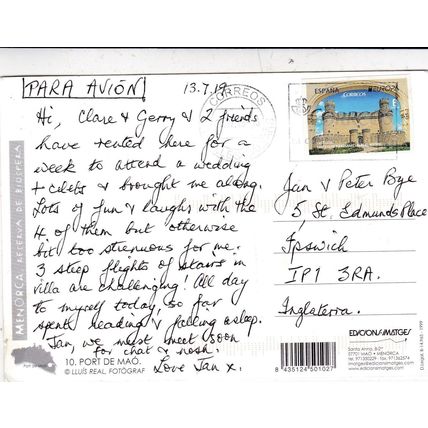 PARA AVIÓN
13.7.19
CORREOS
ESPAÑA
CORREOS
EUROPA
Hi, Clare & Gerry & 2 friends
have rented here for a
week to attend a wedding
+ celebs & brought me along.
Lots of fun & laughs with the
4 of them but otherwise
bit too strenuous for me.
3 steep flights of stairs in
villa are challenging! All day
to myself today, so far
spent reading & falling asleep.
Jan, we must meet soon
for chat & nosh.
Love Jan x.
Jan & Peter Bye
5 St. Edmunds Place
Ipswich
IP1 3RA.
Inglaterra.
MENORCA, RESERVA DE BIOSFERA
10. PORT DE MAÓ.
© LLUÍS REAL, FOTÒGRAF
EDICIONS IMATGES
07701 MAÓ • MENORCA
8 435124 501027